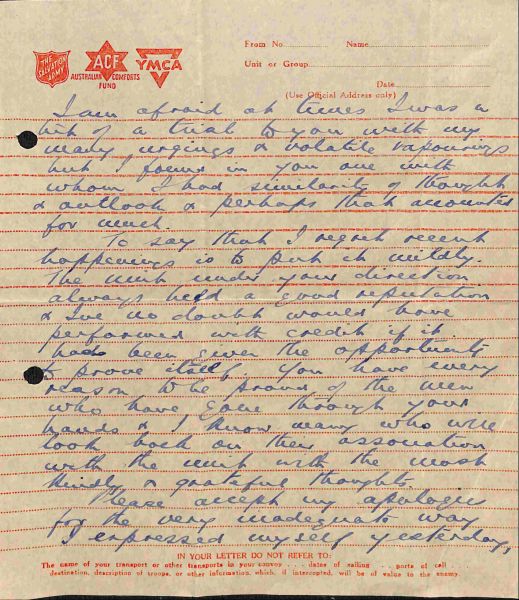 THE SALVATION ARMY
ACF
AUSTRALIAN COMFORTS FUND
YMCA
From No. Name
Unit or Group
Date
(Use Official Address only)
I am afraid at times I was a
bit of a trial to you with my
many urgings & volatile vapourings
but I found in you one with
whom I had similarity of thought
& outlook & perhaps that accounted
for much.
To say that I regret recent
happenings is to put it mildly.
The unit under your direction
always held a good reputation
& I've no doubt would have
performed with credit if it
had been given the opportunity
to prove itself. You have every
reason to be proud of the men
who have gone through your
hands & I know many who will
look back on their association
with the unit with the most
kindly & grateful thoughts.
Please accept my apologies
for the very inadequate way
I expressed myself yesterday,
IN YOUR LETTER DO NOT REFER TO:
The name of your transport or other transports in your convoy . . . dates of sailing . . . ports of call . . .
destination, description of troops, or other information, which, if intercepted, will be of value to the enemy.